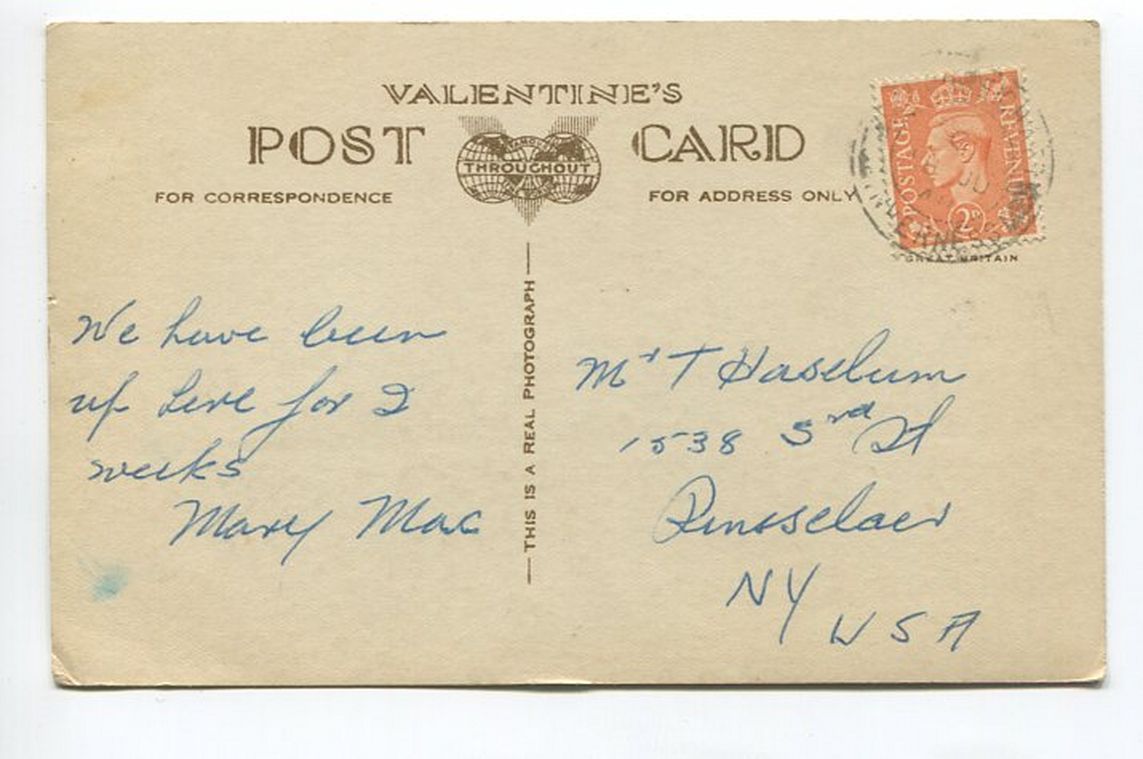 VALENTINE'S
POST CARD
FAMOUS
THROUGHOUT
THE WORLD
FOR CORRESPONDENCE
FOR ADDRESS ONLY
POSTAGE
REVENUE
2D
INVERNESS
GREAT BRITAIN
THIS IS A REAL PHOTOGRAPH
We have been
up here for 2
weeks
Mary Mac
Mr T Haselum
1538 3rd St
Rensselaer
NY
USA